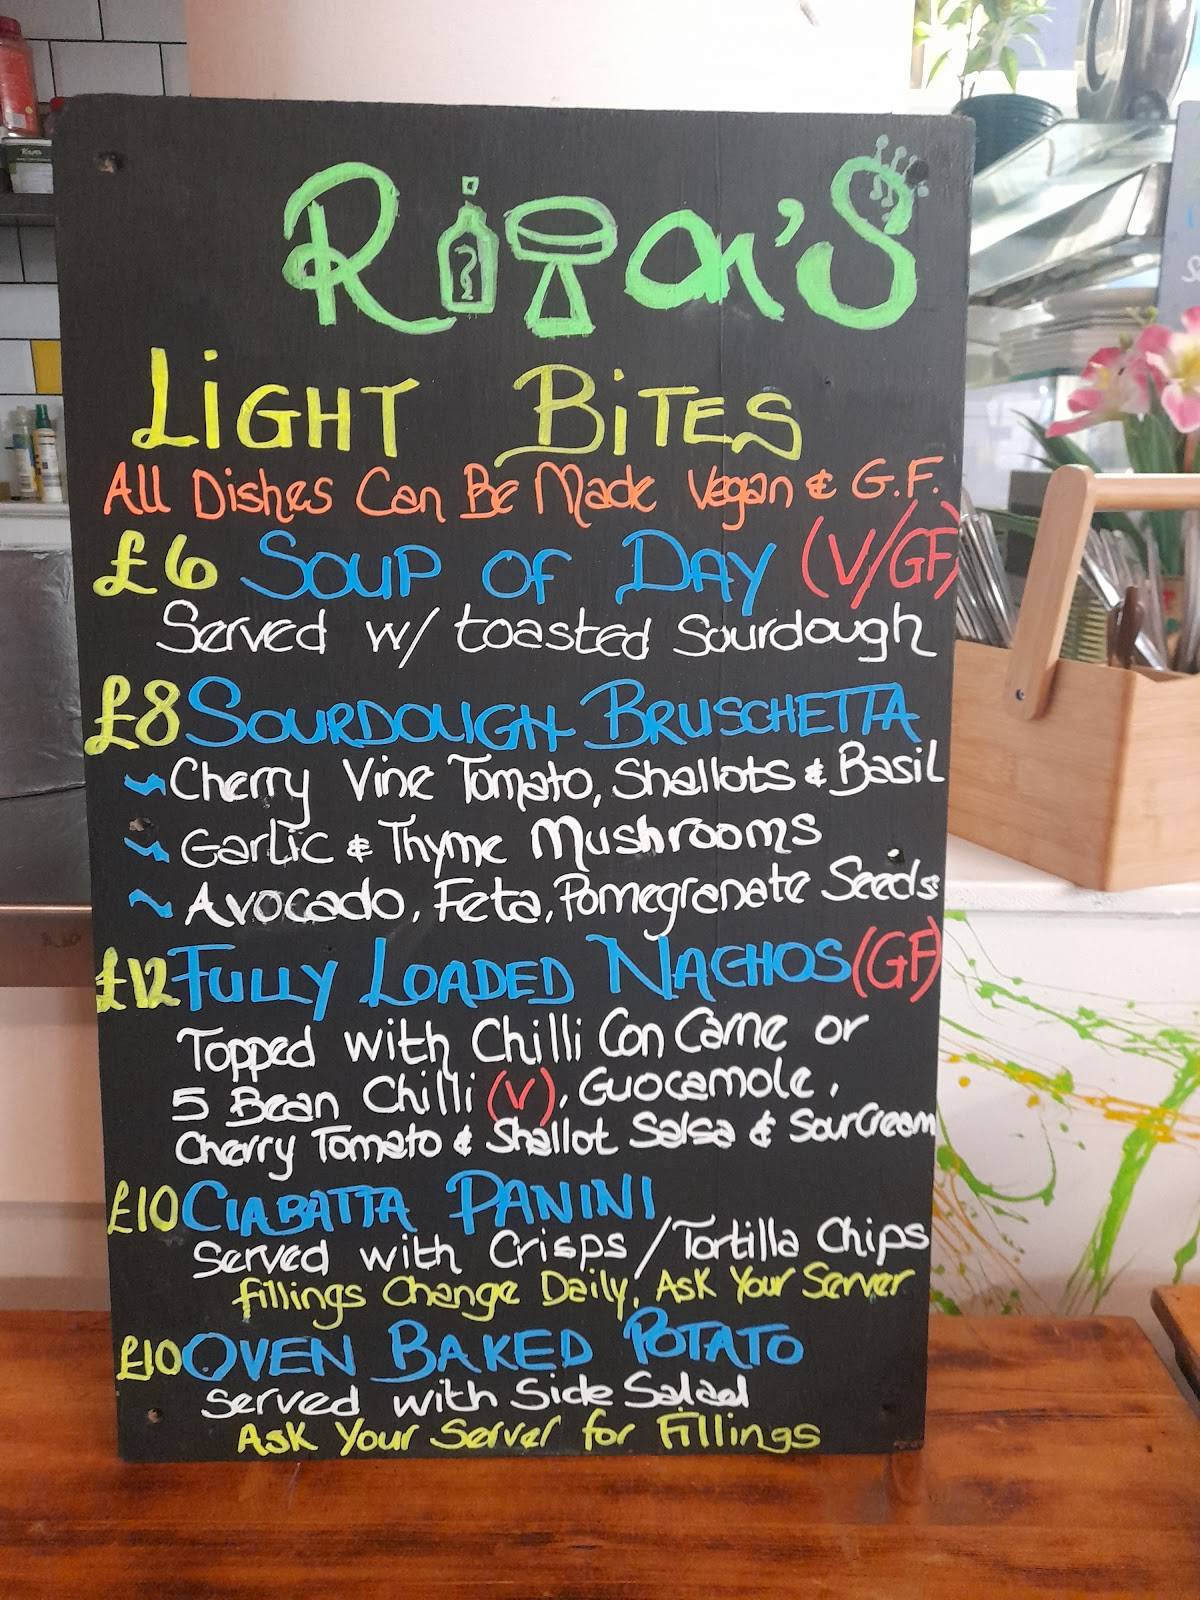 Ritan's
Light Bites
All Dishes Can Be Made Vegan & G.F.
£6 Soup of Day (V/GF)
Served w/ toasted Sourdough
£8 Sourdough Bruschetta
~ Cherry Vine Tomato, Shallots & Basil
~ Garlic & Thyme Mushrooms
~ Avocado, Feta, Pomegranate Seeds
£12 Fully Loaded Nachos (GF)
Topped with Chilli Con Carne or
5 Bean Chilli (V), Guocamole,
Cherry Tomato & Shallot Salsa & Sour Cream
£10 Ciabatta Panini
Served with Crisps / Tortilla Chips
Fillings Change Daily, Ask Your Server
£10 Oven Baked Potato
Served with Side Salad
Ask Your Server for Fillings